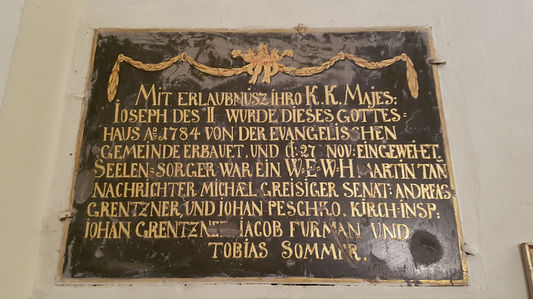 MIT ERLAUBNÜSZ IHRO K.K. MAJES:
IOSEPH DES II WURDE DIESES GOTTES=
HAUS Aº 1784 VON DER EVANGELISCHEN
GEMEINDE ERBAUET, UND d: 27 NOV: EINGEWEIHET.
SEELEN=SORGER WAR EIN W=E=W H. MARTIN TAN
NACHRICHTER MICHÆL GREISIGER SENAT: ANDREAS
GRENTZNER, UND IOHAN PESCHKO. KIRCH=INSP:
IOHAN GRENTZNER IACOB FURMAN UND
TOBIAS SOMMER.